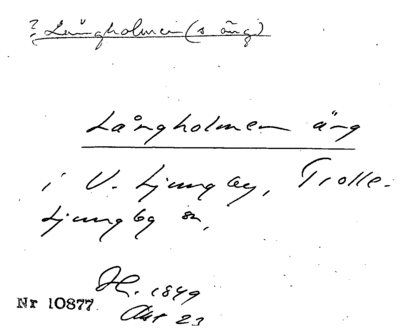 ? Långholmen (s äng)
Långholmen äng
i V. Ljungby, Trolle-
Ljungby sn,
H. 1849
Akt 23
Nr 10877